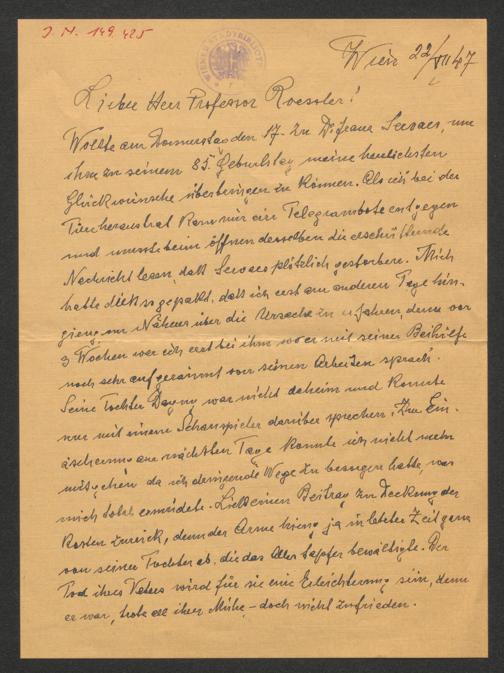 J. N. 149.425
Wien 22/VII 47
Lieber Herr Professor Roessler!
Wollte am Donnerstag den 17. zu Dr. Franz Servaes, um
ihm zu seinem 85. Geburtstag meine herzlichsten
Glückwünsche überbringen zu können. Als ich bei der
Türe heraustrat kam mir ein Telegrambote entgegen
und musste beim öffnen desselben die erschütternde
Nachricht lesen, daß Servaes plötzlich gestorben. Mich
hatte dies so gepakt, daß ich erst am anderen Tage hin-
gieng um Näheres über die Ursache zu erfahren, denn vor
3 Wochen war ich erst bei ihm wo er mit seiner Beihilfe
noch sehr aufgeräumt von seinen Arbeiten sprach.
Seine Tochter Dagny war nicht daheim und konnte
nur mit einem Schauspieler darüber sprechen. Zur Ein-
äscherung am nächsten Tage konnte ich nicht mehr
mitgehen da ich dringende Wege zu besorgen hatte, was
mich sehr ermüdete. Ließ einen Beitrag zur Deckung der
Kosten zurück, denn der Arme hieng ja in letzter Zeit ganz
von seiner Tochter ab, die das Alles tapfer bewältigte. Der
Tod ihres Vaters wird für sie eine Erleichterung sein, denn
er war, trotz all ihrer Mühe, – doch nicht zufrieden.